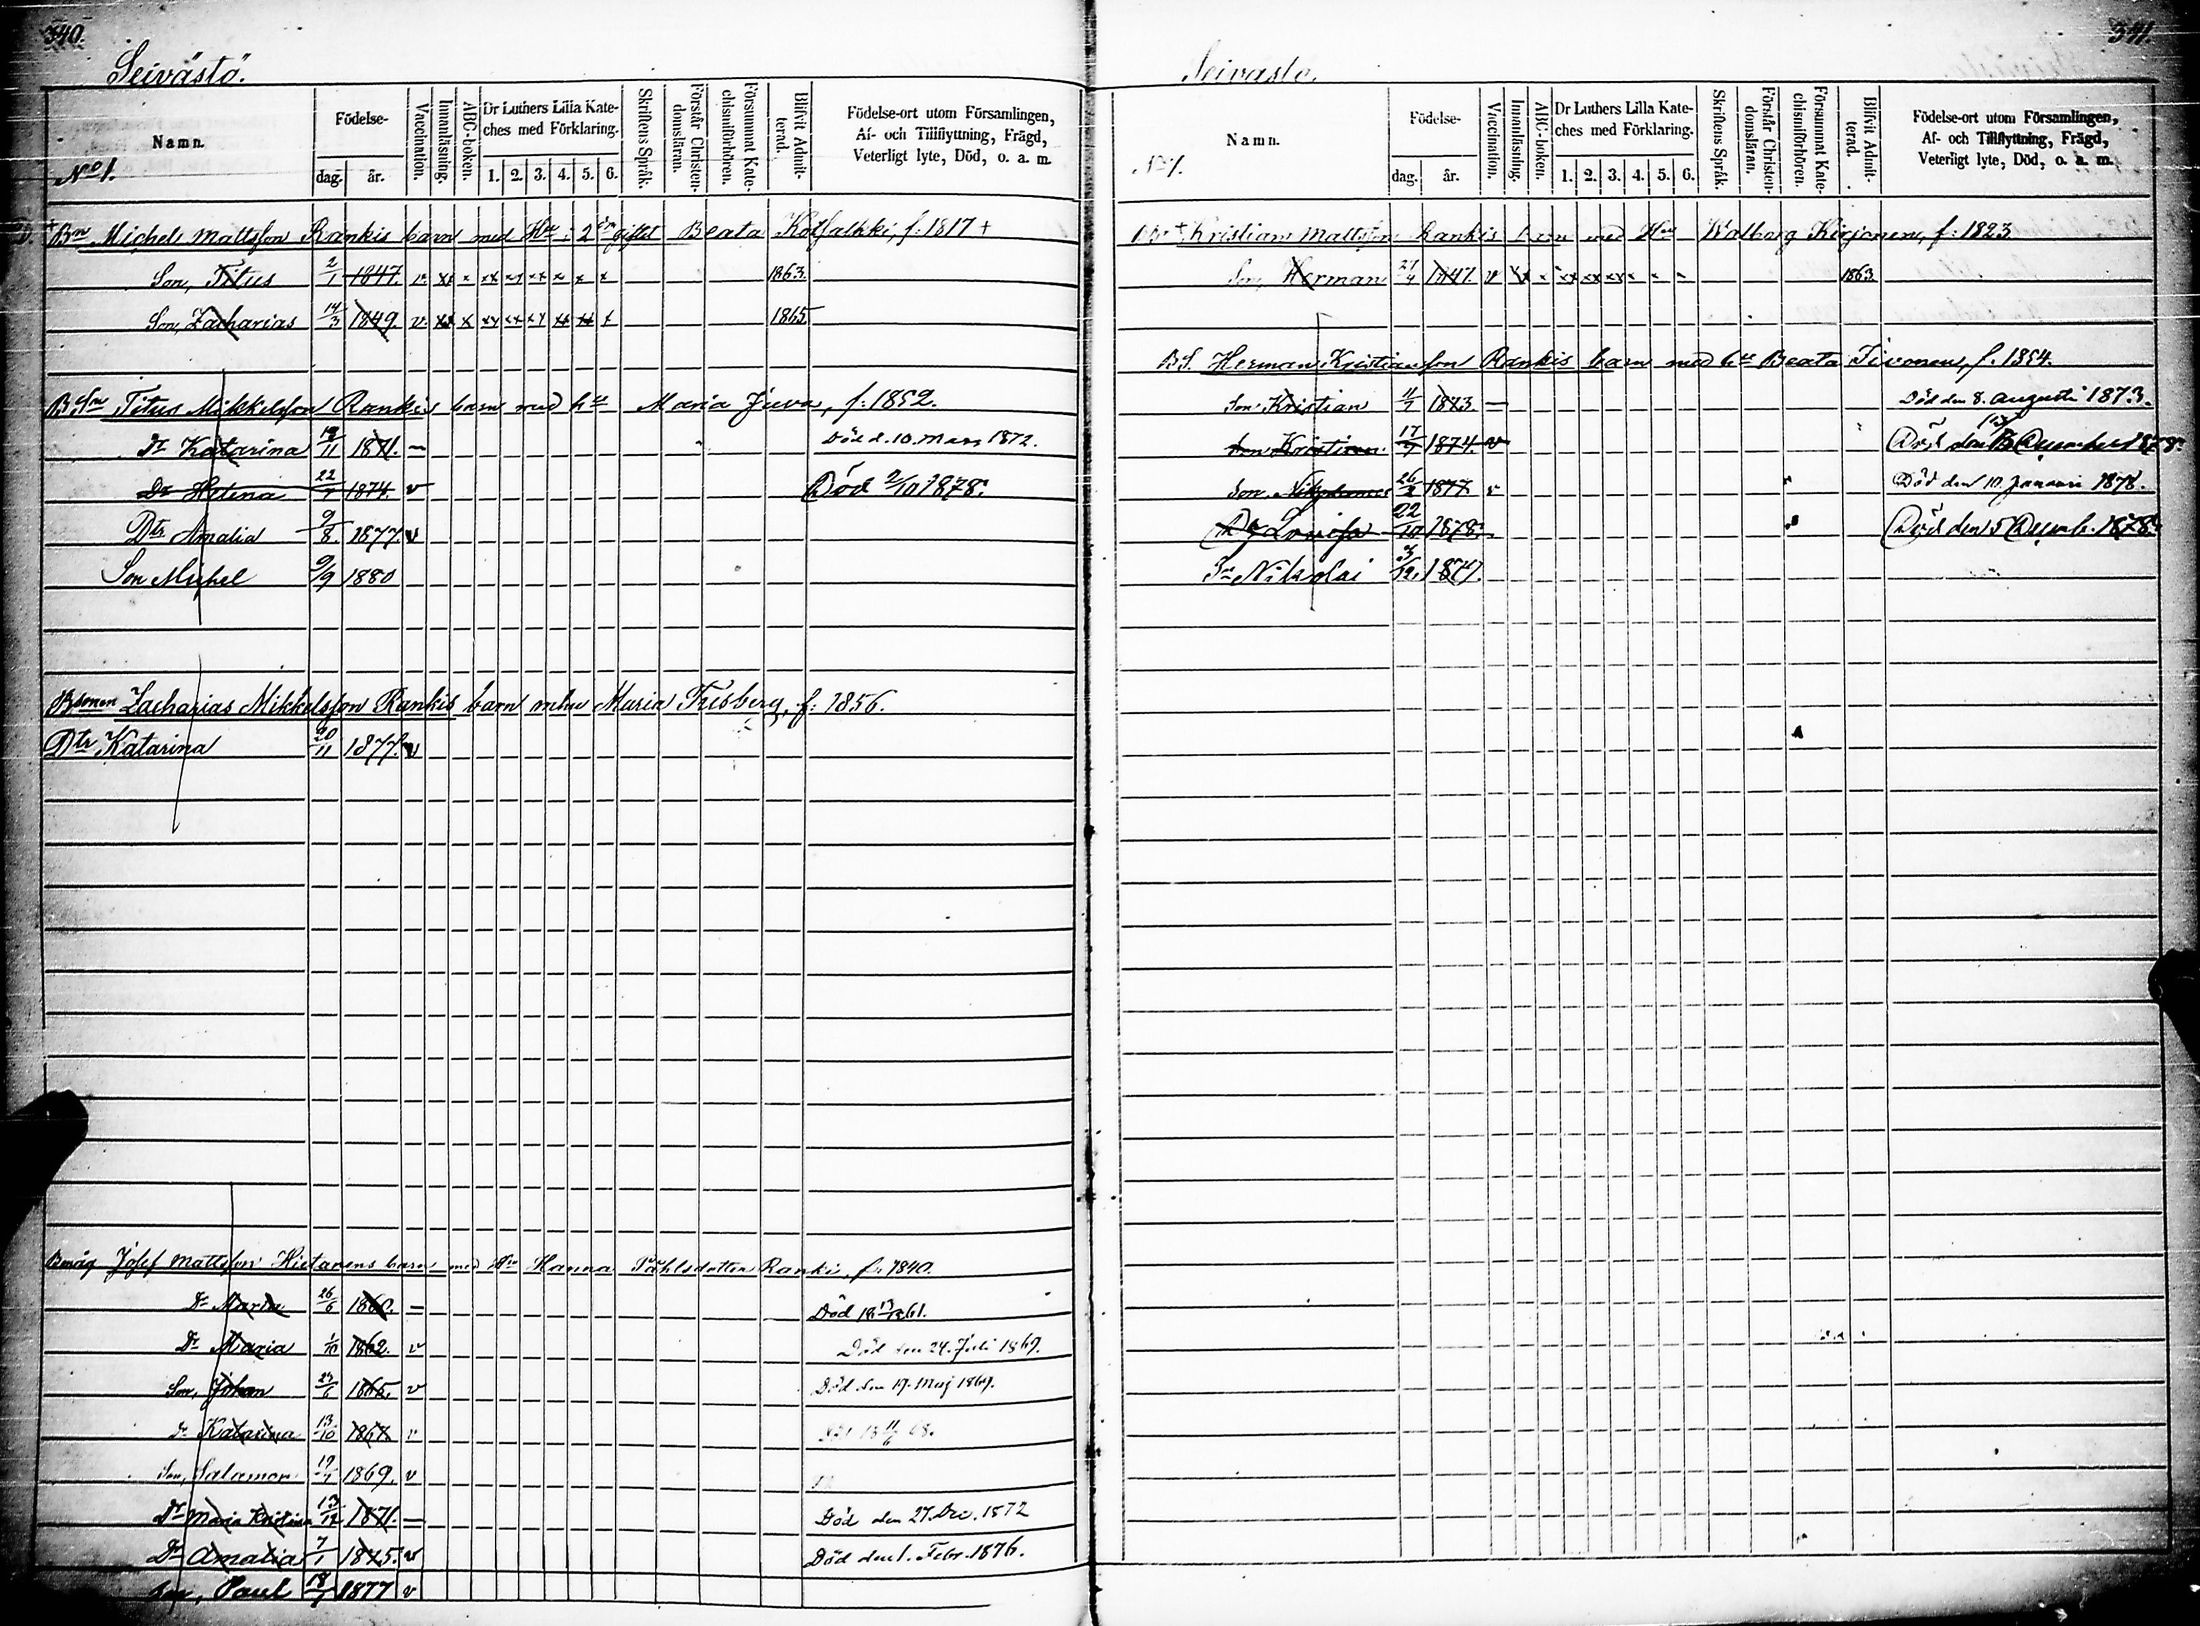 340.
Seivästö.
Namn.
No 1.
Födelse-
dag.
år.
Vaccination.
Innanläsning.
ABC-boken.
Dr Luthers Lilla Kate-
ches med Förklaring.
1. 2. 3. 4. 5. 6.
Skriftens Språk.
Förstår Christen-
domsläran.
Försummat Kate-
chismiförhören.
Blifvit Admit-
terad.
Födelse-ort utom Församlingen,
Af- och Tillflyttning, Frägd,
Veterligt lyte, Död, o. a. m.
Bn Michels Mattsson Rankis barn med Hu i 2 giftet Beata f. 1817 +
Son, Titus 2/1 1847. v. 1863.
Son, Zacharias 14/3 1849. v. 1865.
B Sn Titus Mikkelsson Rankis barn med hu Maria Juva, f. 1852.
Dr Katarina 18/11 1871. — Död d. 10. Mars 1872.
Dr Helena 22/7 1874. v Död 2/10 1878.
Dtr Amalia 9/8. 1877. v
Son Michel 9/9 1880
Bsonen Zacharias Mikkelsson Rankis barn m hu Maria Frisberg, f. 1856.
Dtr Katarina 20/11 1877. v
Bmåg Josef Mattsson Hietanens barn med Hu Hanna Påhlsdotter Ranki, f. 1840.
Dr Maria 26/6 1860. — Död
Dr Maria 1/10 1862. v Död den 24. Juli 1869.
Son, Johan 1865. v Död den 19. Maj 1869.
Dr Katarina 13/10 1867. v
Son, Salamon 19/7 1869. v
Dr Maria Kristina 13/12 1871. — Död den 27. Dec. 1872
Dr Amalia 7/1 1875. v Död den 1. Febr. 1876.
Son, Paul 18/7 1877 v
341.
Seivästö.
Namn.
No 1.
Födelse-
dag.
år.
Vaccination.
Innanläsning.
ABC-boken.
Dr Luthers Lilla Kate-
ches med Förklaring.
1. 2. 3. 4. 5. 6.
Skriftens Språk.
Förstår Christen-
domsläran.
Försummat Kate-
chismiförhören.
Blifvit Admit-
terad.
Födelse-ort utom Församlingen,
Af- och Tillflyttning, Frägd,
Veterligt lyte, Död, o. a. m.
Kristians Mattsson Rankis barn med Hu Walborg Kirjonen, f. 1823.
Son, Herman 27/4 1847. v 1863.
BS. Herman Kristiansson Rankis barn med hu Beata Tivonen, f. 1854.
Son Kristian 11/7 1873. — Död den 8. Augusti 1873.
Son Kristian 17/7 1874. v Död den December 1878.
Son 26/2 1877 v Död den 10. Januari 1878.
Dr Lovisa 22/10 1878. Död den 5 Decemb. 1878.
Sn Nikolai